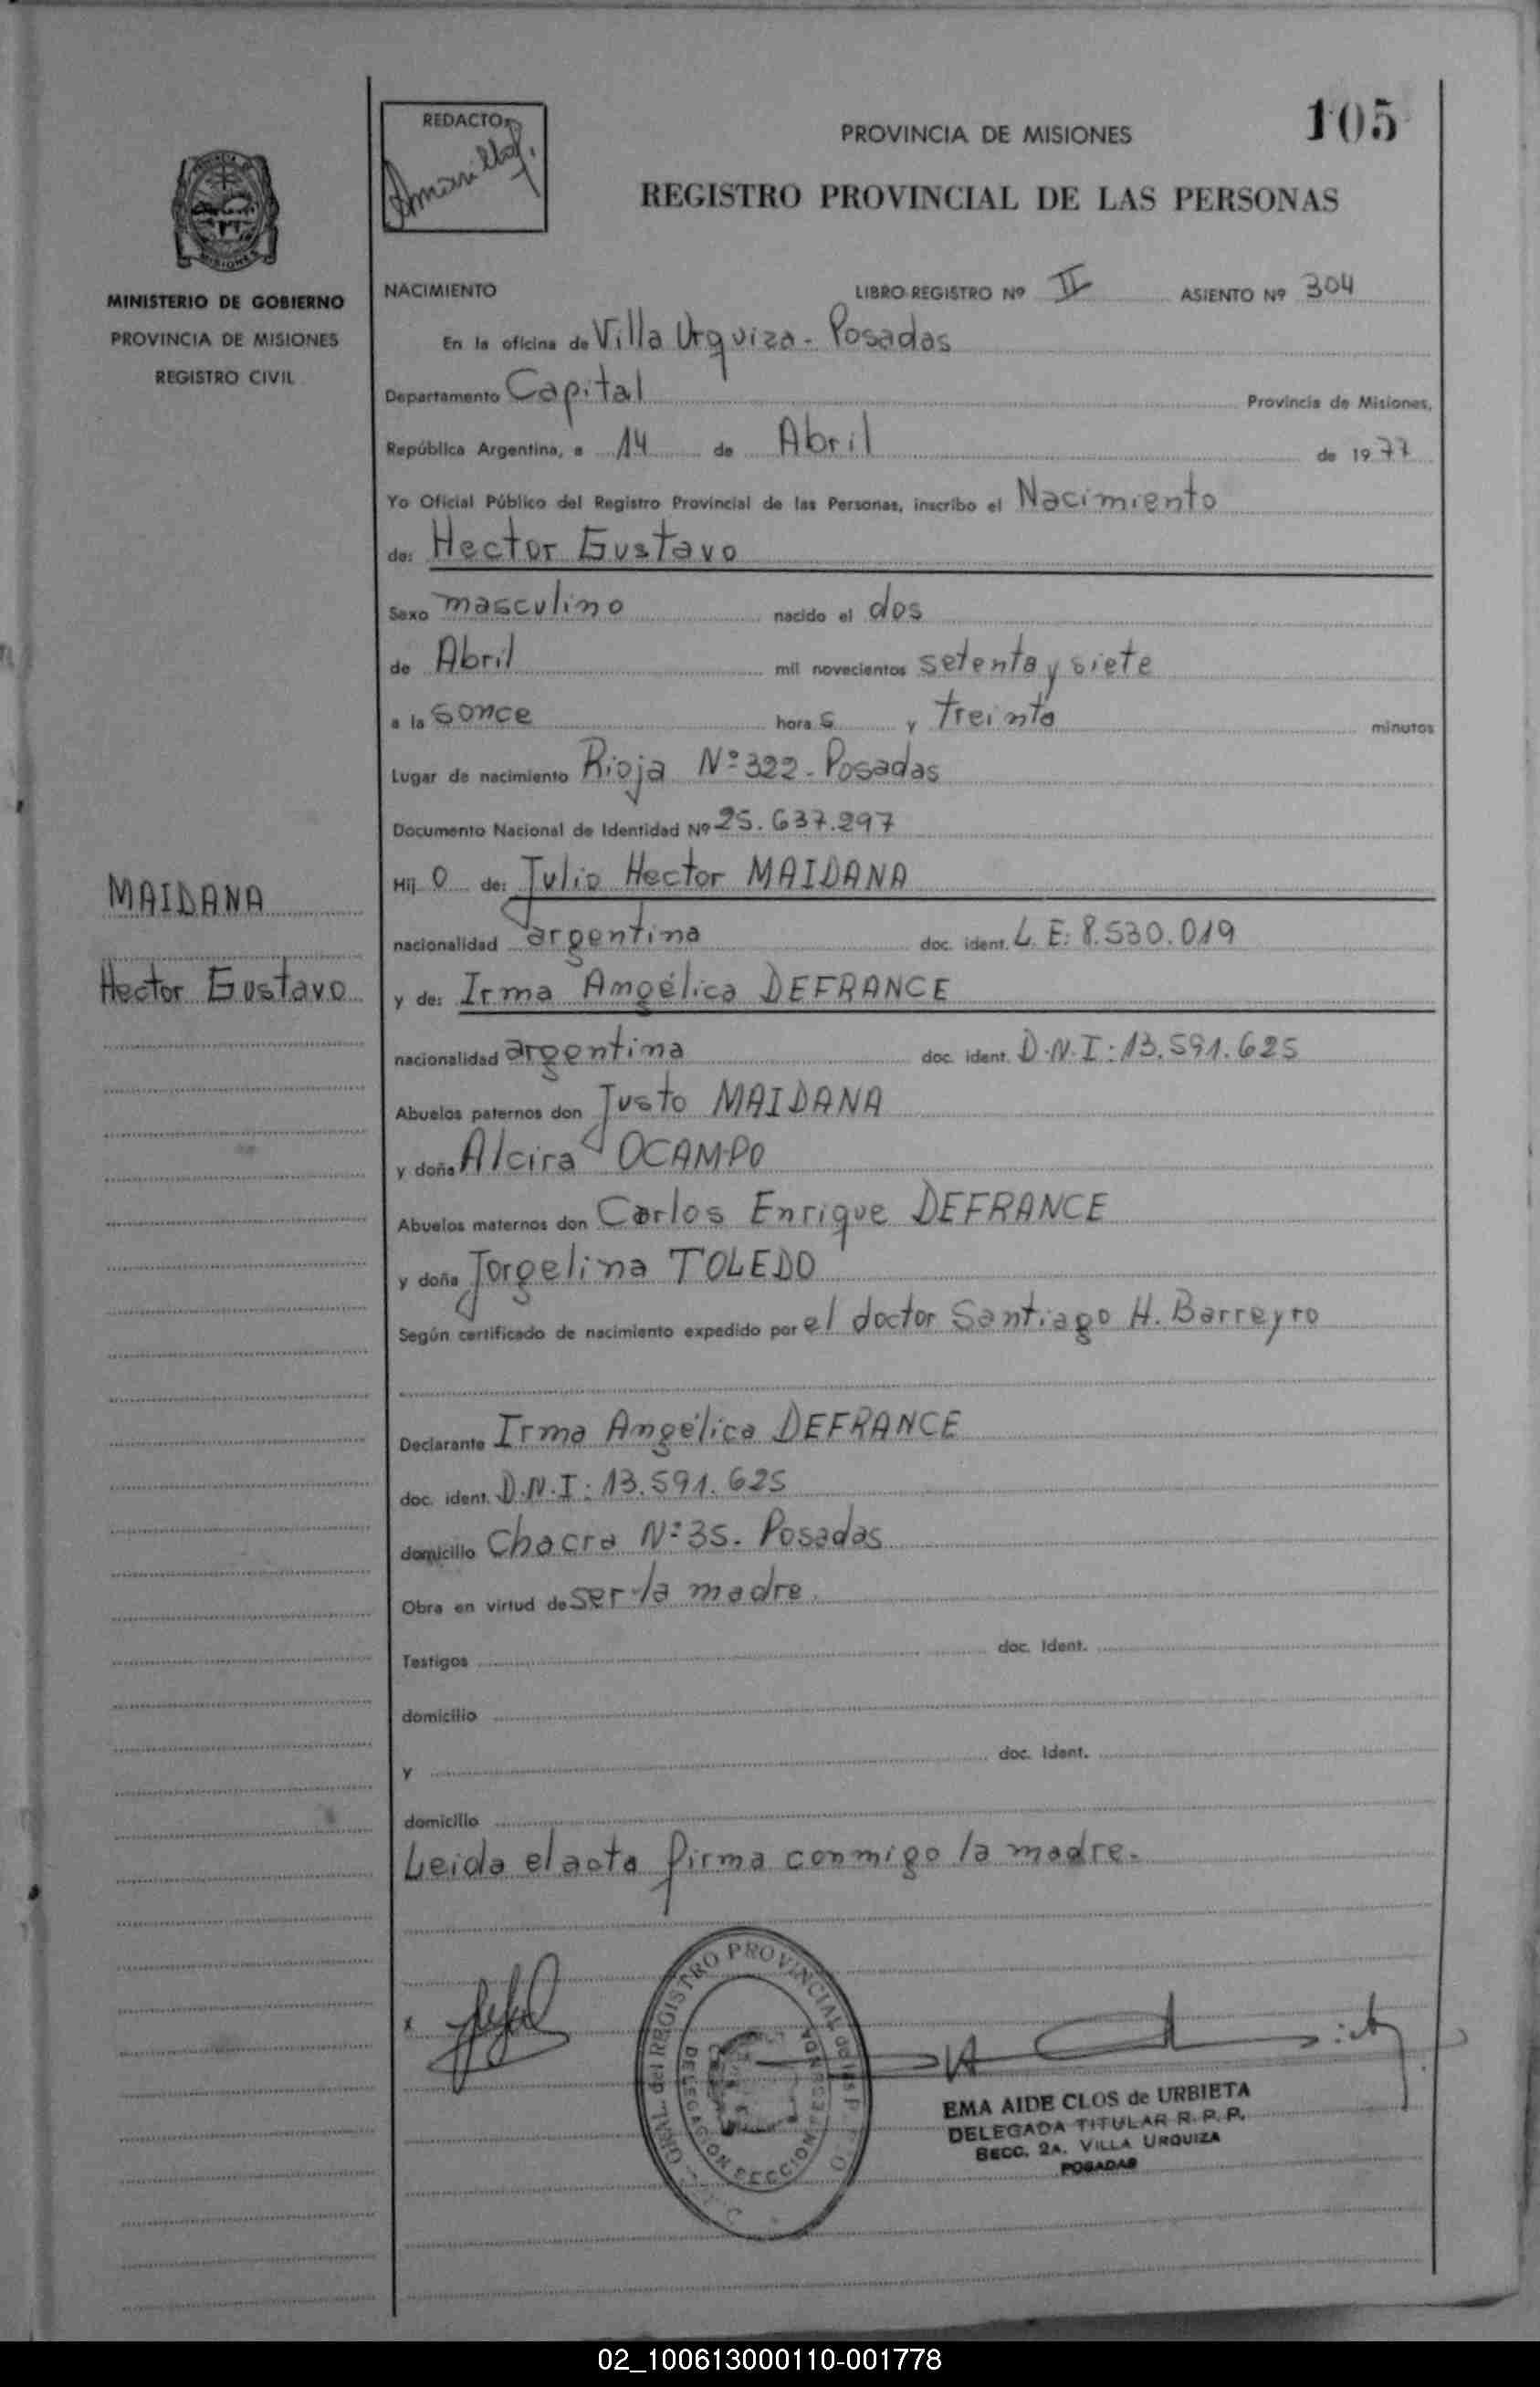 105
REDACTOR
PROVINCIA DE MISIONES
REGISTRO PROVINCIAL DE LAS PERSONAS
MISIONES
MINISTERIO DE GOBIERNO
PROVINCIA DE MISIONES
REGISTRO CIVIL
NACIMIENTO LIBRO REGISTRO Nº II ASIENTO Nº 304
En la oficina de Villa Urquiza - Posadas
Departamento Capital Provincia de Misiones,
República Argentina, a 14 de Abril de 1977
Yo Oficial Público del Registro Provincial de las Personas, inscribo el Nacimiento
de: Hector Gustavo
Sexo masculino nacido el dos
de Abril mil novecientos setenta y siete
a la sonce hora s y treinta minutos
Lugar de nacimiento Rioja Nº 322 - Posadas
Documento Nacional de Identidad Nº 25.637.297
MAIDANA
Hij o de: Julio Hector MAIDANA
nacionalidad argentina doc. ident. L.E: 8.530.019
Hector Gustavo
y de: Irma Angélica DEFRANCE
nacionalidad argentina doc. ident. D.N.I: 13.591.625
Abuelos paternos don Justo MAIDANA
y doña Alcira OCAMPO
Abuelos maternos don Carlos Enrique DEFRANCE
y doña Jorgelina TOLEDO
Según certificado de nacimiento expedido por el doctor Santiago H. Barreyro
Declarante Irma Angélica DEFRANCE
doc. ident. D.N.I: 13.591.625
domicilio Chacra Nº 35 - Posadas
Obra en virtud de ser la madre.
Testigos doc. Ident.
domicilio
y doc. Ident.
domicilio
Leida el acta firma conmigo la madre.
x
GRAL. del REGISTRO PROVINCIAL de las P
DELEGACION SECCION SEGUNDA
EMA AIDE CLOS de URBIETA
DELEGADA TITULAR R. P. P.
SECC. 2A. VILLA URQUIZA
POSADAS
02_100613000110-001778